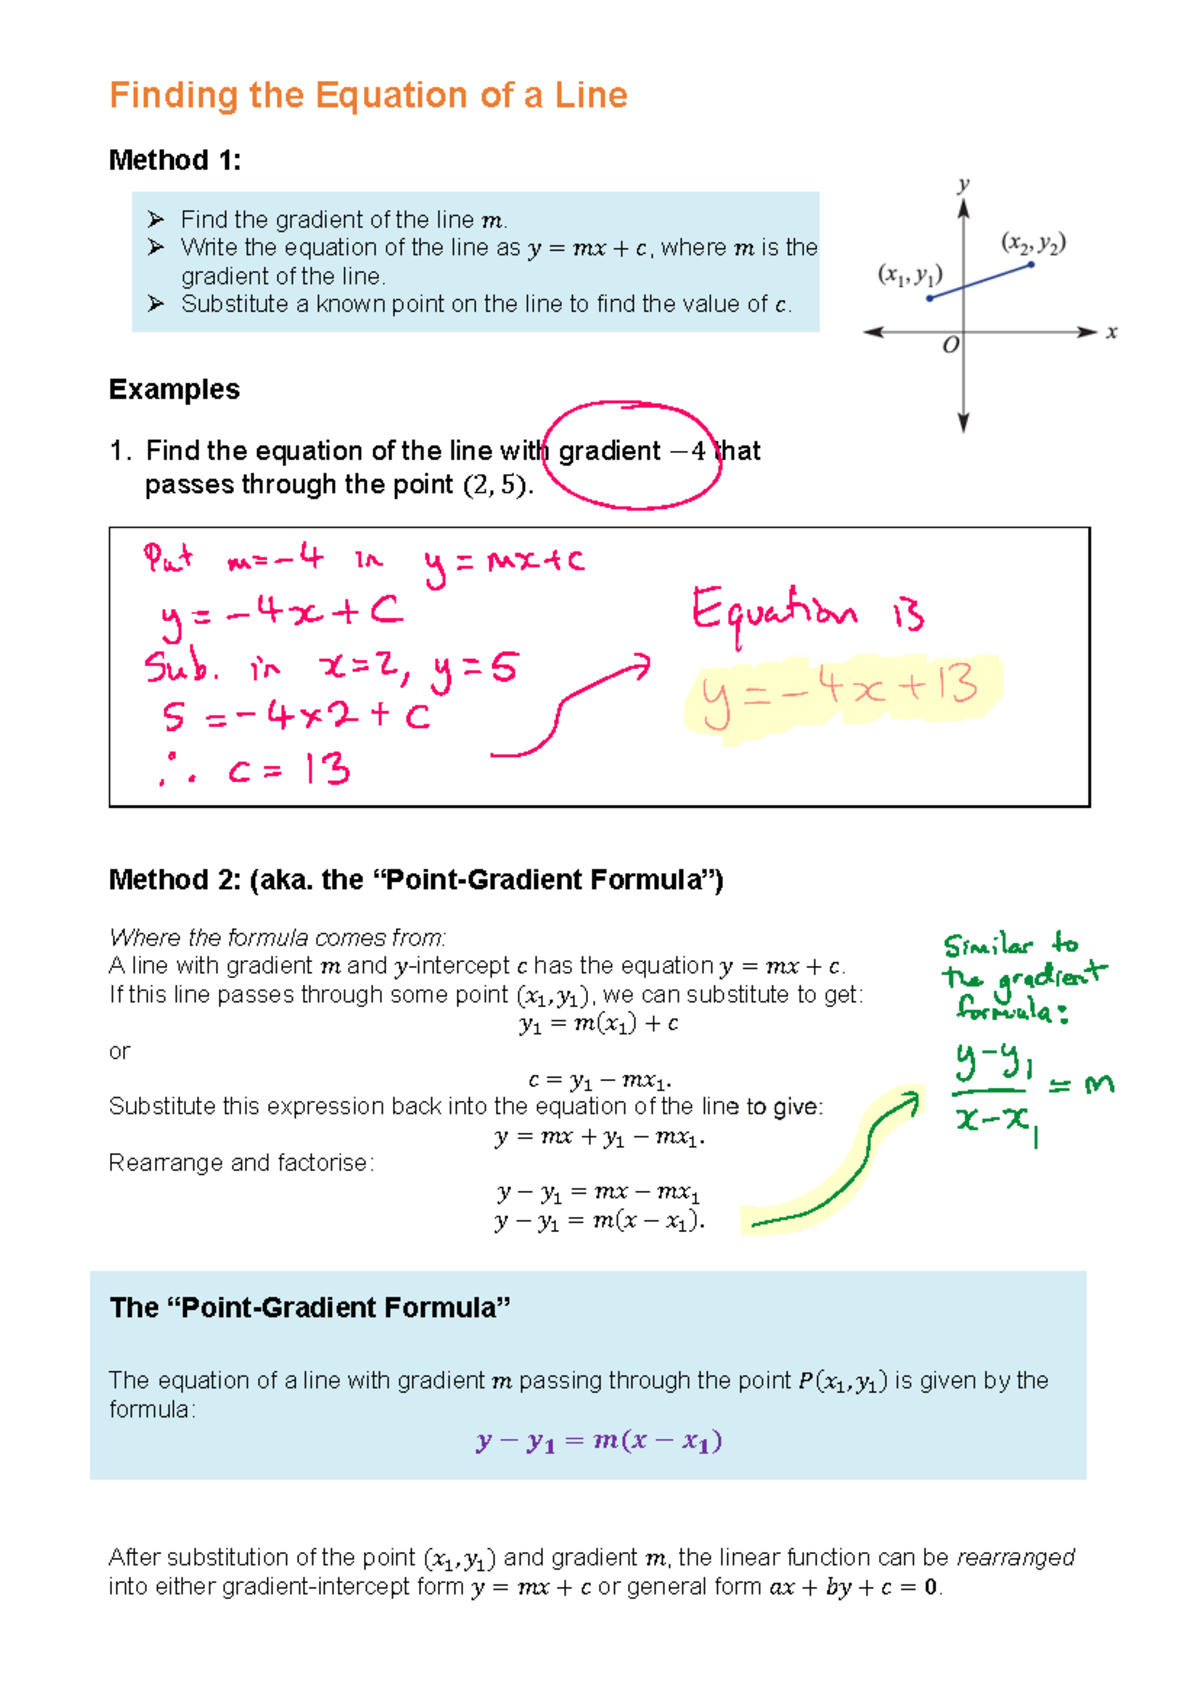 Finding the Equation of a Line
Method 1:
➢ Find the gradient of the line m.
➢ Write the equation of the line as y = mx + c, where m is the
gradient of the line.
➢ Substitute a known point on the line to find the value of c.
y
(x₂, y₂)
(x₁, y₁)
x
O
Examples
1. Find the equation of the line with gradient −4 that
passes through the point (2, 5).
Put m=-4 in y=mx+c
y=-4x+c
Sub. in x=2, y=5
5=-4×2+c
∴ c=13
Equation is
y=-4x+13
Method 2: (aka. the “Point-Gradient Formula”)
Where the formula comes from:
A line with gradient m and y-intercept c has the equation y = mx + c.
If this line passes through some point (x₁, y₁), we can substitute to get:
y₁ = m(x₁) + c
or
c = y₁ − mx₁.
Substitute this expression back into the equation of the line to give:
y = mx + y₁ − mx₁.
Rearrange and factorise:
y − y₁ = mx − mx₁
y − y₁ = m(x − x₁).
Similar to
the gradient
formula:
y-y₁
= m
x-x₁
The “Point-Gradient Formula”
The equation of a line with gradient m passing through the point P(x₁, y₁) is given by the
formula:
y − y₁ = m(x − x₁)
After substitution of the point (x₁, y₁) and gradient m, the linear function can be rearranged
into either gradient-intercept form y = mx + c or general form ax + by + c = 0.